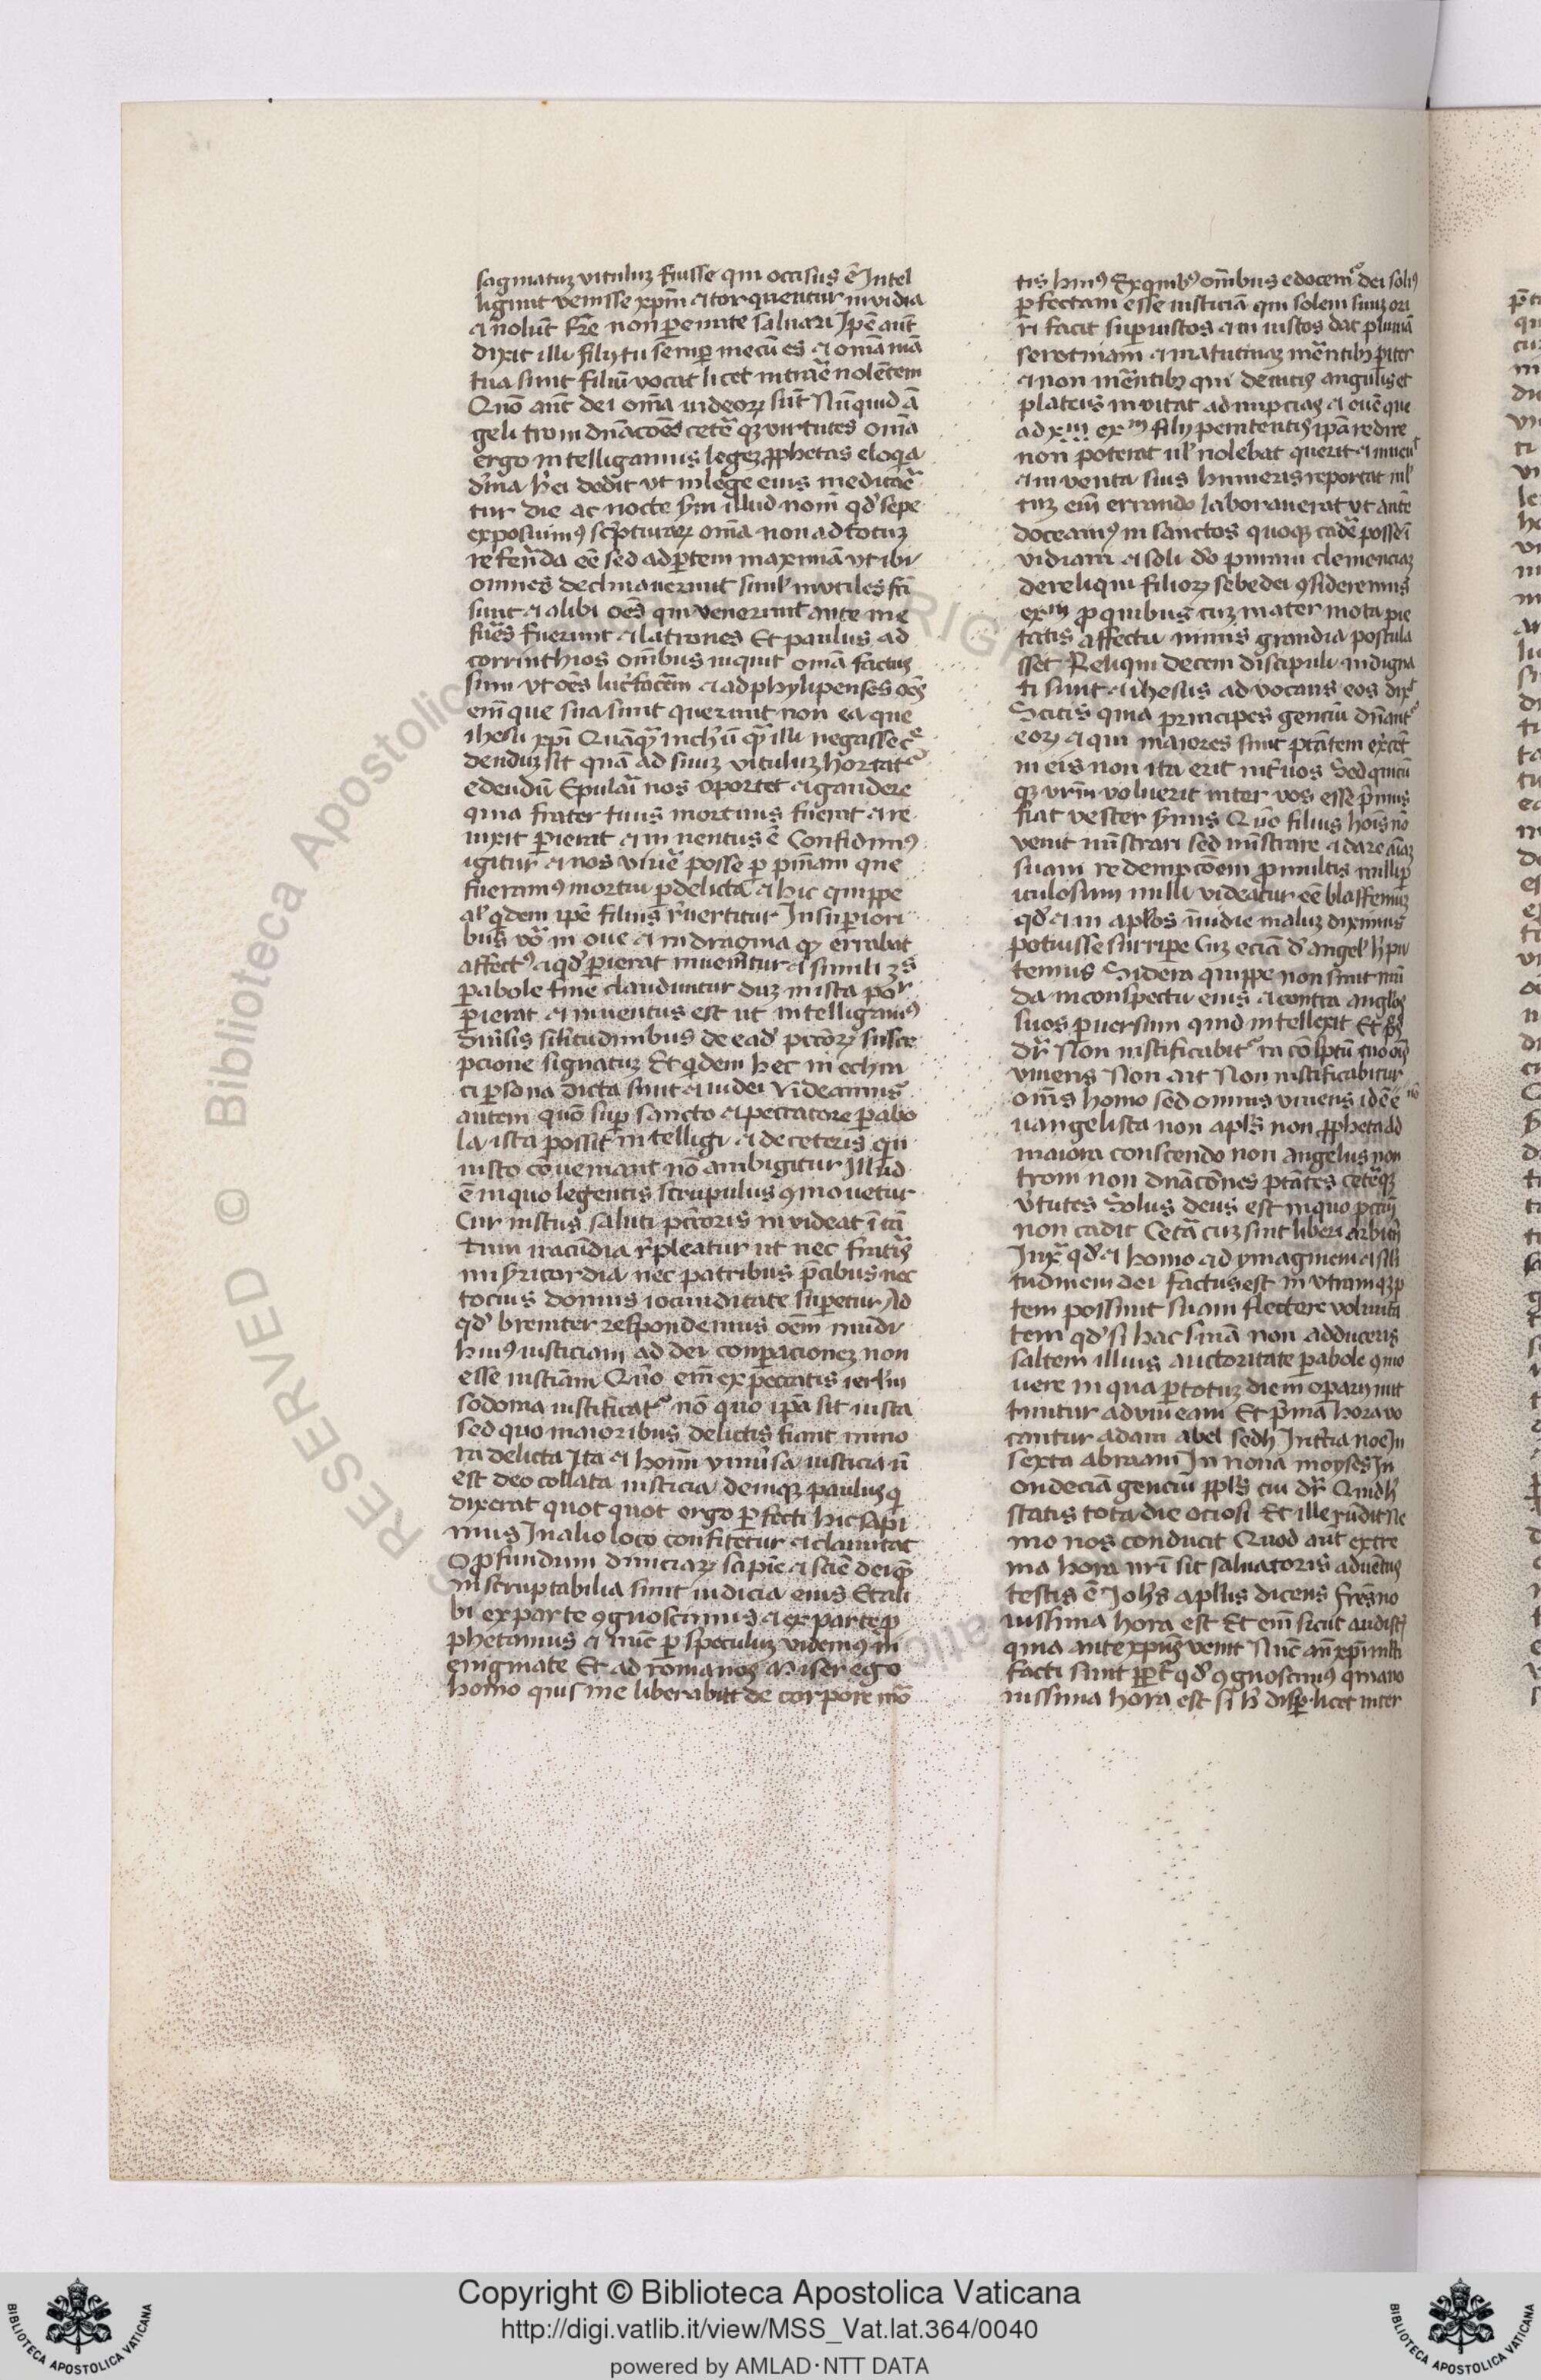 saginatuz vituluz fuisse qui occisus ē Intel
ligunt venisse xp̄m et torquentur invidia
et nolūt frē non pereunte salvari Ip̄e aut̄
dixit illi fily tu semp mecū es et om̄ia mā
tua sunt filiū vocat licet intrare nolētem
Quō aūt dei om̄ia iudeoꝝ sūt Nūquid ā
geli troni dn̄acōes cetēꝗꝫ virtutes om̄ia
ergo intelligamus legez ꝓphetas eloq̄a
dīna hͥ ei dedit ut in lege eius meditare
tur die ac nocte sm̄ illud nom̄ qd̓ sepe
exposuimꝰ sc̄pturaꝝ om̄ia non ad totuz
referēda eē sed ad ꝑtem maximā ut ibi
omnes declinaverunt simul̓ inutiles fc̄i
sunt et alibi oēs qui venerunt ante me
fures fuerunt et latrones Et paulus ad
corrinthios om̄ibus inquit om̄ia factus
sum ut oēs lucͥfacē̄m et ad phylipenses oēs
em̄ que sua sunt querunt non ea que
ihesu xpī Quāqͣ nichͥ ū qͣ illi negasse cͬ
denduz sit quā ad suuz vituluz hortatͬ
edendū Epulari nos oportet et gaudere
quia frater tuus mortuus fuerat et re
uixit ꝑierat et in uentus ē Confidimꝰ
igitur et nos vivē posse ꝑ pn̄iam que
fueramꝰ mortui ꝑ delicta et hic quippe
al̓ qͥdem ip̄e filius rͤvertitur In suꝑiori
bus vͦo in oue et in dragma qꝫ errabat
affectꝰ et qd̓ ꝑierat inuenitur et simili
ꝑabole fine clauduntur duz in ista por
ꝑierat et inventus est ut intelligamꝰ
diuͥsis similitudinibus de ead̓ pcc̄oꝝ susce
pcione signatuz Et qͥdem hec in echni
ci ꝑsona dicta sint et iudei Videamus
autem quō suꝑ sancto et peccatore ꝑabo
la ista possit intelligi et de ceteris qͥn
iusto cōveniant nō ambigitur Illud
ē in quo legentis scrupulus ꝯmovetur
Cur iustus saluti pcc̄oris invideat ī tā
tum iracūdia rͤpleatur ut nec fratrͥs
misericordia nec patribus pͤcibus nec
tocius domus iocunditate suꝑetur Ad
qd̓ breviter respondemus oēm mūdi
huiꝰ iusticiam ad dei conꝑacionez non
esse iustic̄iam Quō em̄ ex peccatis ierl̓m
sodoma iustificatͬ nō quo ip̄a sit iusta
sed quo maioribus delictis fiant mino
ra delicta Ita et hom̄ universa iusticia ū
est deo collata iusticia deniqꝫ paulus qͥ
dixerat quotquot ergo ꝑfecti hic sapi
mus In alio loco confitetur et clamitat
O ꝓfundum diviciaꝝ sapīe et sciē dei qͣ
inscruptabilia sunt iudicia eius Et ali
bi ex parte ꝯgnoscimus et ex parte ꝓ
phetamus et nūc ꝑ speculuz videmꝰ in
enigmate Et ad romanos Miser ego
homo quis me liberabit de corpore mō
tis huiꝰ Ex quibꝰ om̄ibus edocemͬ dei soliꝰ
ꝑfectam esse iusticiā qui solem suuz ori
ri facit suꝑ iustos et iniustos dat pluviā
serotinam et matutinaz mērentibꝫ ꝑiter
et non mērentibꝫ qui de vicis angulis et
plateis invitat ad nupcias et ovē que
ad xͫ exͫ fily penitentis ip̄a redire
non poterat ul̓ nolebat querit et inven
et inventa suis humeris reportat mul
tuz em̄ errando laboraverat ut autē
doceamꝰ in sanctos quoqꝫ cadē posse ī
vidiam et soli dō puram clemenciaz
derelinqui filioꝝ sebedei ꝯsideremus
exͫ ꝓ quibus cuz mater mota pie
tatis affectu nimis grandia postula
sset Reliqui decem discipuli indigna
ti sunt et ihesus advocans eos dixͭ
Scitis quia principes genciū dn̄antͬ
eoꝝ et qui maiores sunt ptātem exͤcēt
in eis non ita erit intͤ vos Sed quicū
qꝫ vr̄m voluerit inter vos esse pͥmus
fiat vester sͤvus Quō filius hoīs nō
venit mīstrari sed mīstrare et dare aīaz
suam redempcōem ꝓ multis nulli ꝑ
iculosum nulli videatur eē blasfemuz
qd̓ et in aplos īuidie maluz diximus
potuisse surriꝑe Cuz eciā d̓ angel̓ hͦ pu
temus Sidera quippe non sunt mū
da in conspectu eius et contra anglos
suos ꝑversum quid intellexit Et ī ps̄
dr̄ Non iustificabitͬ in cōspectū tuo oīs
vivens Non ait Non iustificabitur
om̄is homo sed omnis vivens id̓ ē nō
uangelista non apl̓s non ꝓpheta ad
maiora conscendo non angelus non
troni non dn̄acōnes ptātes cetēqꝫ
vͥtutes Solus deus est in quo pcctū
non cadit Cetā cuz sint liberi arbitrii
Iuxͣ qd̓ et homo ad ymaginem et sili
tudinem dei factus est in utramqꝫ ꝑ
tem possunt suam flectere volunta
tem qd̓ si hac sn̄iā non adduceris
saltem illius auctoritate ꝑabole ꝯmo
uere in qua ꝑ totuz diem oꝑary mit
tuntur ad vineam Et pͥma hora vo
cantur adam abel sedh In tͤcia noe In
sexta abraam In nona moyses In
ondeciā genciū ppl̓s cui dr̄ Quid hͥ
statis tota die ociosi Et ille rn̄dit Ne
mo nos conducit Quod aūt extre
ma hora nr̄i sit salvatoris advētus
testis ē Joh̄s apl̓us dicens frēs no
uissima hora est Et em̄ sicut audistͥ
quia antexpūs venit Nūc aū̄ antixpī multi
facti sunt ꝓptͤ qd̓ ꝯgnoscimꝰ quia no
uissima hora est si hͦ displicet inter
Copyright © Biblioteca Apostolica Vaticana
http://digi.vatlib.it/view/MSS_Vat.lat.364/0040
powered by AMLAD·NTT DATA
BIBLIOTECA APOSTOLICA VATICANA
BIBLIOTECA APOSTOLICA VATICANA